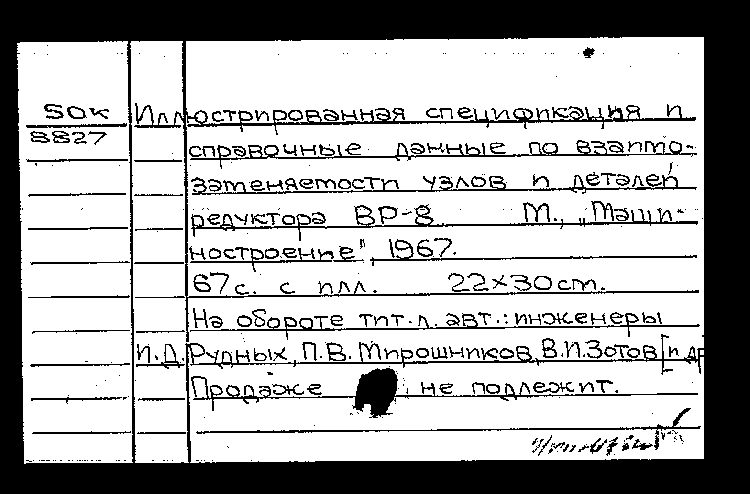 SOK Иллюстрированная спецификация и
8827
справочные данные по взаимо-
заменяемости узлов и деталей
редуктора ВР-8 М., „Маши-
ностроение", 1967.
67с. с илл. 22×30cm.
На обороте тит.л. авт.: инженеры
И.Д. Рудных, П.В. Мирошников, В.И. Зотов [и др
Продаже не подлежит.